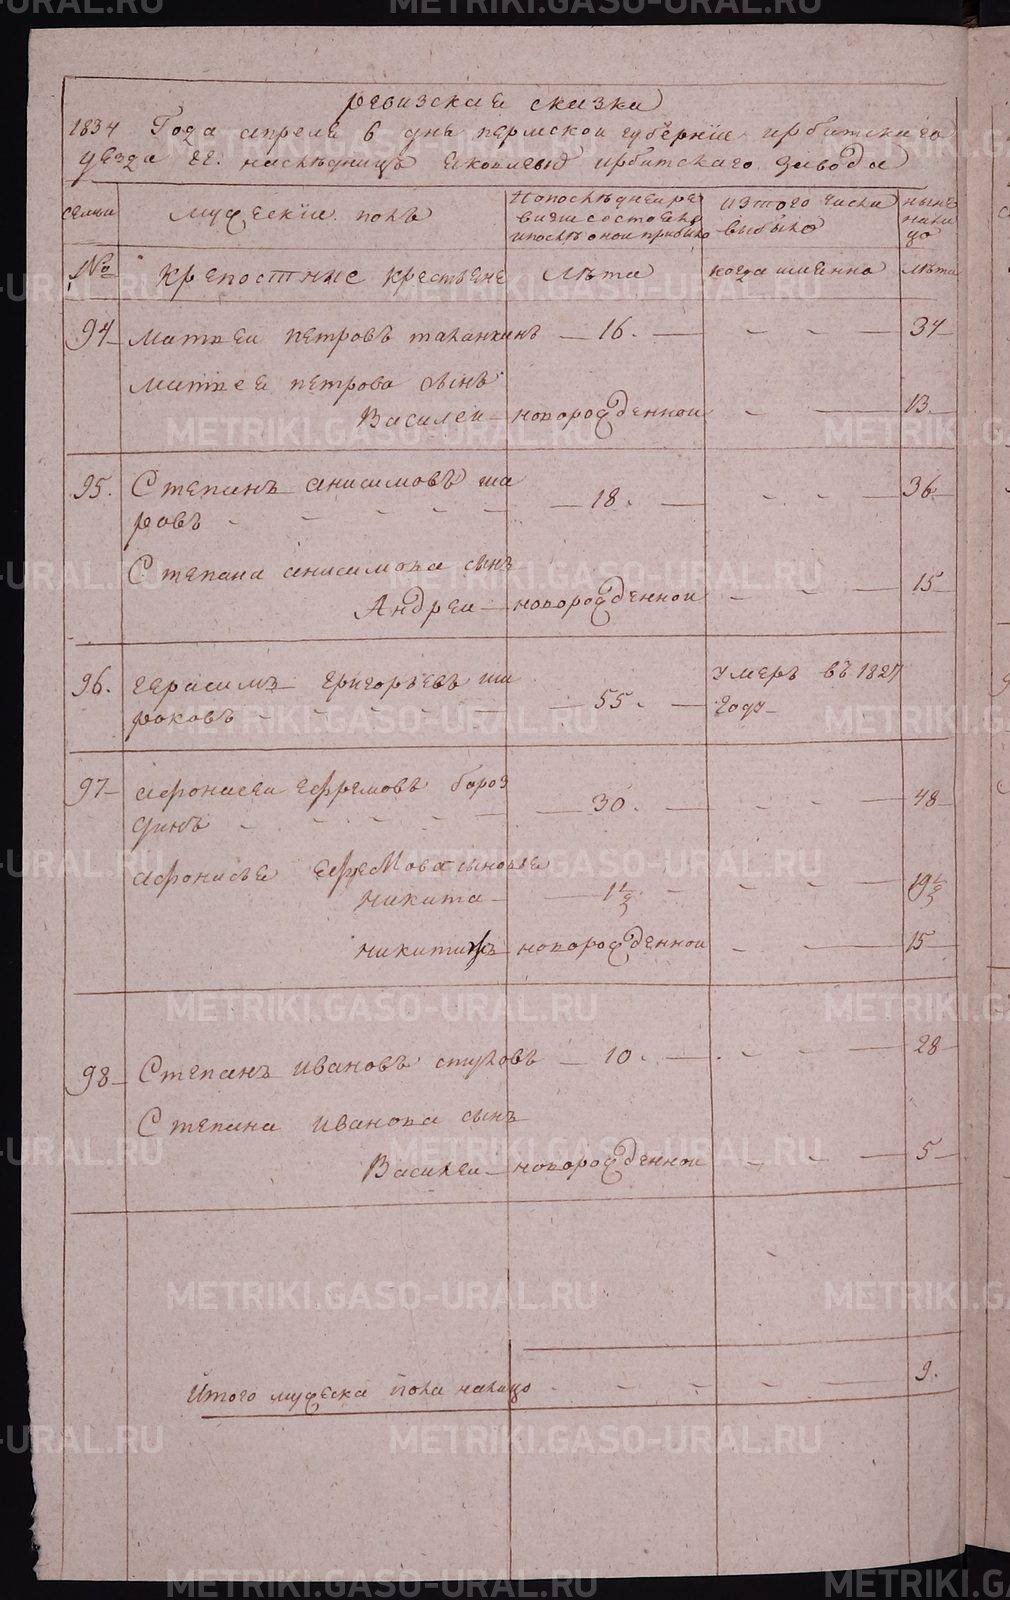 ревизская сказка
1834 Года апреля 6 дня пермской губернии ирбитскаго
уезда гг. наследницъ яковлевыхъ ирбитскаго завода
семьи
мужескiй полъ
По последней ре
визiи состояло
и после оной прибыло
из того числа
выбыло
ныне
нали
цо
№
крепостные крестьяне
лета
когда именно
лета
94 Матвей петровъ таланкинъ 16. 34
Матвея петрова сынъ
Василей новорожденной 13
95. Степанъ анисимовъ ша
ровъ 18. 36
Степана анисимова сынъ
Андрей новорожденной 15
96. герасимъ григорьевъ ши
роковъ 55. умеръ въ 1827
году
97 афонасей ефремовъ бороз
динъ 30. 48
афонасья ефремова сыновья
никита 1 1/2 19 1/2
никитажъ новорожденной 15
98 Степанъ ивановъ стуловъ 10. 28
Степана иванова сынъ
Василей новорожденной 5
Итого мужеска пола налицо 9.
METRIKI.GASO-URAL.RU